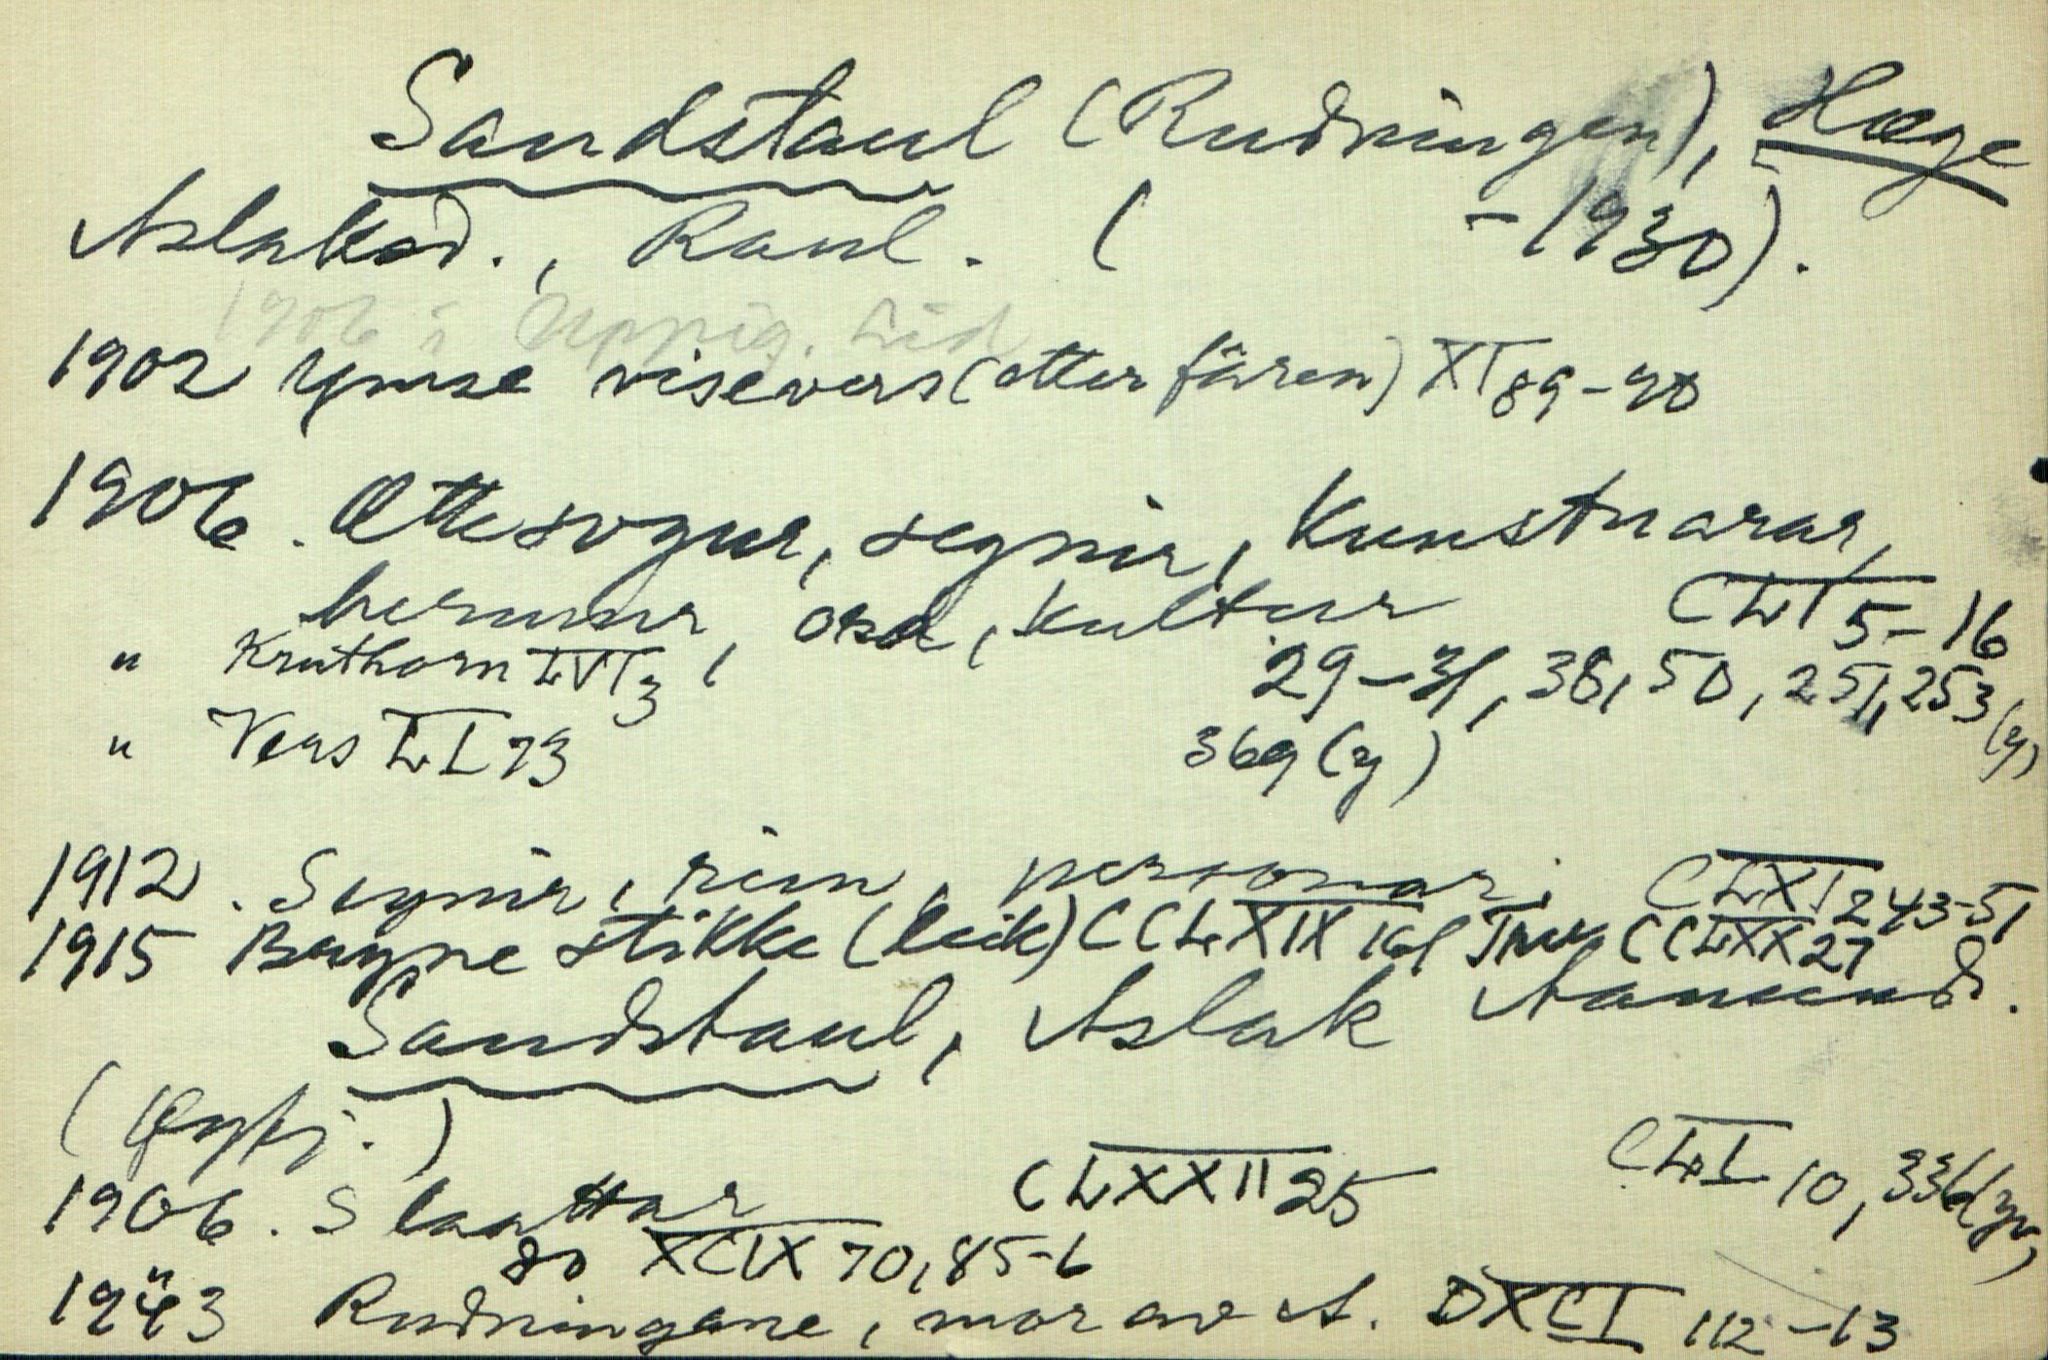 Sandstaul (Rudningen), Hæge
Aslaksd., Raul. ( -1930).
1906 i Uppig. Lid
1902 Ymse visevers (etter fåren) XI 89-90
1906. Ættesogur, segnir, kunstnarar,
herumr, ord, kultur CLI 5-16
" Kruthorn LVI 3, 29-31, 38, 50, 251, 253 (y)
" Vers LI 73 369 (y)
1912. Segnir, rim, personar; CLXI 243-51
1915 Bygne stikke (leik) CCLXIX 161 Tru CCLXX 27
Sandstaul, Aslak Aamunds.
(Øyfj.) CLI 10, 336 (yv)
1906. Slaattar CLXXII 25
" do XCIX 70, 85-6
1943 Rudningane, mor av A. DXCI 112-13